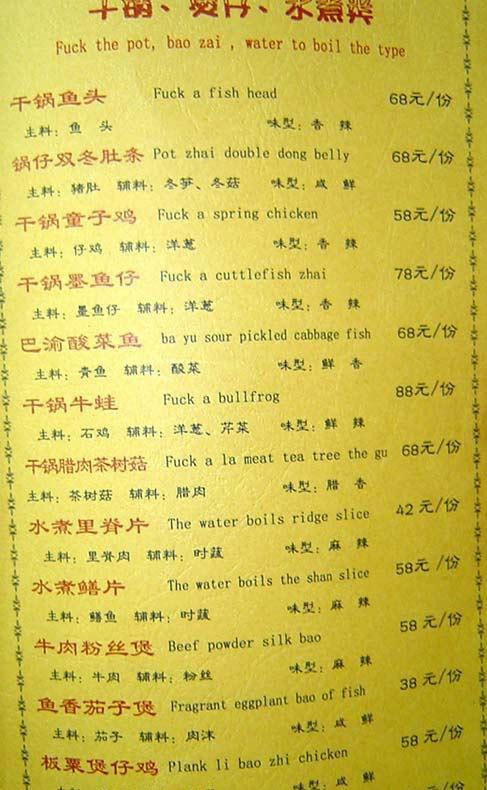 干锅、煲仔、水煮类
Fuck the pot, bao zai , water to boil the type
干锅鱼头 Fuck a fish head 68元/份
主料：鱼 头 味型：香 辣
锅仔双冬肚条 Pot zhai double dong belly 68元/份
主料：猪肚 辅料：冬笋、冬菇 味型：咸 鲜
干锅童子鸡 Fuck a spring chicken 58元/份
主料：仔鸡 辅料：洋葱 味型：香 辣
干锅墨鱼仔 Fuck a cuttlefish zhai 78元/份
主料：墨鱼仔 辅料：洋葱 味型：香 辣
巴渝酸菜鱼 ba yu sour pickled cabbage fish 68元/份
主料：青鱼 辅料：酸菜 味型：鲜 香
干锅牛蛙 Fuck a bullfrog 88元/份
主料：石鸡 辅料：洋葱、芹菜 味型：鲜 辣
干锅腊肉茶树菇 Fuck a la meat tea tree the gu 68元/份
主料：茶树菇 辅料：腊肉 味型：腊 香
水煮里脊片 The water boils ridge slice 42元/份
主料：里脊肉 辅料：时蔬 味型：麻 辣
水煮鳝片 The water boils the shan slice 58元/份
主料：鳝鱼 辅料：时蔬 味型：麻 辣
牛肉粉丝煲 Beef powder silk bao 58元/份
主料：牛肉 辅料：粉丝 味型：麻 辣
鱼香茄子煲 Fragrant eggplant bao of fish 38元/份
主料：茄子 辅料：肉沫 味型：咸 鲜
板粟煲仔鸡 Plank li bao zhi chicken 58元/份
味型：咸 鲜